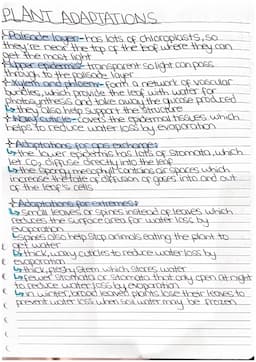 PLANT ADAPTATIONS
* Palisade layer - has lots of chloroplasts, so
they're near the top of the leaf where they can
get the most light
* Upper epidermis - transparent so light can pass
through to the palisade layer
* Xylem and phloem - form a network of vascular
bundles, which provide the leaf with water for
photosynthesis and take away the glucose produced
↳ they also help support the structure
* Waxy cuticle - covers the epidermal tissues which
helps to reduce water loss by evaporation
* Adaptations for gas exchange:
↳ the lower epidermis has lots of stomata, which
let CO₂ diffuse directly into the leaf
↳ the spongy mesophyll contains air spaces which
increase the rate of diffusion of gases into and out
of the leaf's cells
* Adaptations for extremes:
↳ small leaves or spines instead of leaves which
reduces the surface area for water loss by
evaporation
↳ spines also help stop animals eating the plant to
get water
↳ thick, waxy cuticles to reduce water loss by
evaporation
↳ thick, fleshy stem which stores water
↳ fewer stomata or stomata that only open at night
to reduce water loss by evaporation
↳ in winter, broad leaved plants lose their leaves to
prevent water loss when soil water may be frozen